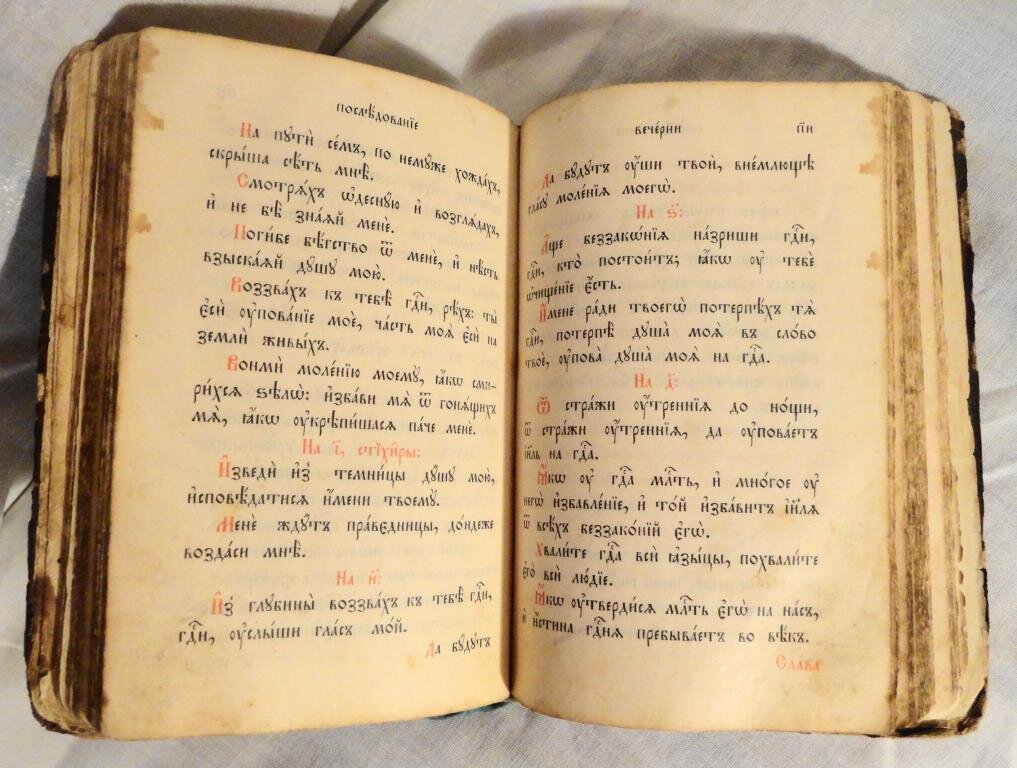 послѣ́дованїе
На пꙋтѝ се́мъ, по немꙋ́же хожда́хъ,
скры́ша сѣ́ть мнѣ̀.
Смотрѧ́хъ ѡ҆деснꙋ́ю и҆ возглѧ́дахъ,
и҆ не бѣ̀ зна́ѧй менѐ.
Поги́бе бѣ́гство ѿ менѐ, и҆ нѣ́сть
взыска́ѧй дꙋ́шꙋ мою̀.
Воззва́хъ къ тебѣ̀ гдⷭ҇и, рѣ́хъ: ты̀
є҆сѝ ᲂу҆пова́нїе моѐ, ча́сть моѧ̀ є҆сѝ на
землѝ живы́хъ.
Вонмѝ моле́нїю моемꙋ̀, ꙗ҆́кѡ сми-
ри́хсѧ ѕѣлѡ̀: и҆зба́ви мѧ̀ ѿ гонѧ́щихъ
мѧ̀, ꙗ҆́кѡ ᲂу҆крѣпи́шасѧ па́че менѐ.
На і҃, стїхи̑ры:
И҆зведѝ и҆з̾ темни́цы дꙋ́шꙋ мою̀,
и҆сповѣ́датисѧ и҆́мени твоемꙋ̀.
Менѐ ждꙋ́тъ пра́вєдницы, до́ндеже
возда́си мнѣ̀.
На и҃:
И҆з̾ глꙋбины̀ воззва́хъ къ тебѣ̀ гдⷭ҇и,
гдⷭ҇и, ᲂу҆слы́ши гла́съ мо́й.
Да бꙋ́дꙋтъ
вече́рни пи҃
Да бꙋ́дꙋтъ ᲂу҆́ши твоѝ, вне́млющѣ
гла́сꙋ моле́нїѧ моегѡ̀.
На ѕ҃:
А҆́ще беззакѡ́нїѧ на́зриши гдⷭ҇и,
гдⷭ҇и, кто̀ постои́тъ; ꙗ҆́кѡ ᲂу҆ тебѐ
ѡ҆чище́нїе є҆́сть.
И҆́мене ра́ди твоегѡ̀ потерпѣ́хъ тѧ̀
гдⷭ҇и, потерпѣ̀ дꙋша̀ моѧ̀ въ сло́во
твоѐ, ᲂу҆пова̀ дꙋша̀ моѧ̀ на гдⷭ҇а.
На д҃:
Ѿ стра́жи ᲂу҆́треннїѧ до но́щи,
ѿ стра́жи ᲂу҆́треннїѧ, да ᲂу҆пова́етъ
і҆и҃ль на гдⷭ҇а.
Ꙗ҆́кѡ ᲂу҆ гдⷭ҇а млⷭ҇ть, и҆ мно́гое ᲂу҆
негѡ̀ и҆збавле́нїе, и҆ то́й и҆зба́витъ і҆и҃лѧ
ѿ всѣ́хъ беззако́нїй є҆гѡ̀.
Хвали́те гдⷭ҇а всѝ ꙗ҆зы́цы, похвали́те
є҆го̀ всѝ лю́дїе.
Ꙗ҆́кѡ ᲂу҆тверди́сѧ млⷭ҇ть є҆гѡ̀ на на́съ,
и҆ и҆́стина гдⷭ҇нѧ пребыва́етъ во вѣ́къ.
Сла́ва